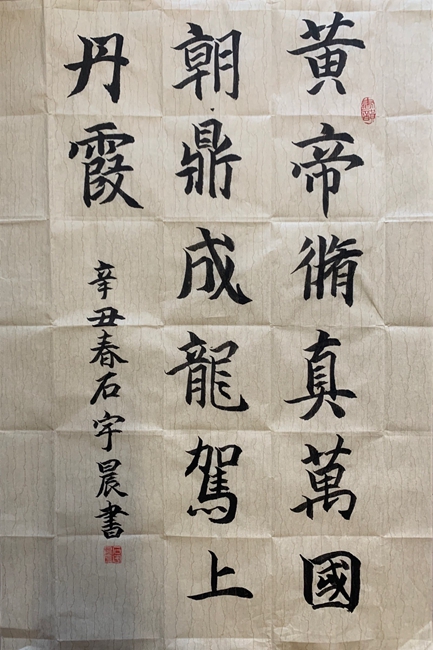 黄帝脩真萬國
朝鼎成龍駕上
丹霞
辛丑春石宇晨書